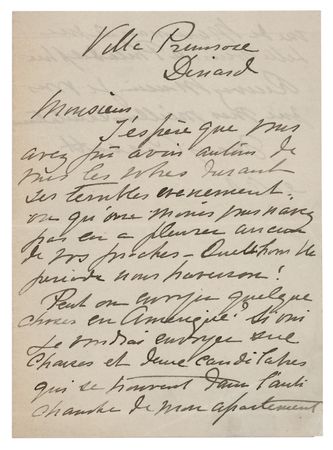 Villa Primrose
Dinard
Monsieur
J'espère que vous
avez pu avoir autour de
vous les vôtres durant
ces terribles evenements
ou qu'au moins vous n'avez
pas eu a pleurer aucun
de vos proches - Quelle
periode nous traversons!
Peut on envoyer quelque
choses en Amerique? Si oui
je voudrai envoyer
chaises et deux candélabres
qui se trouvent dans l'anti
chambre de mon apartement